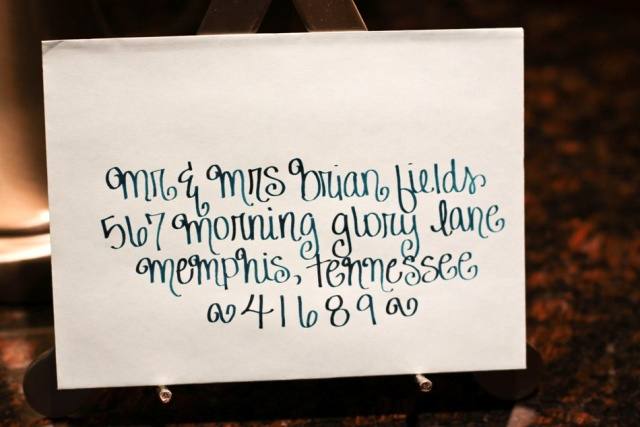 mr & mrs brian fields
567 morning glory lane
memphis, tennessee
41689